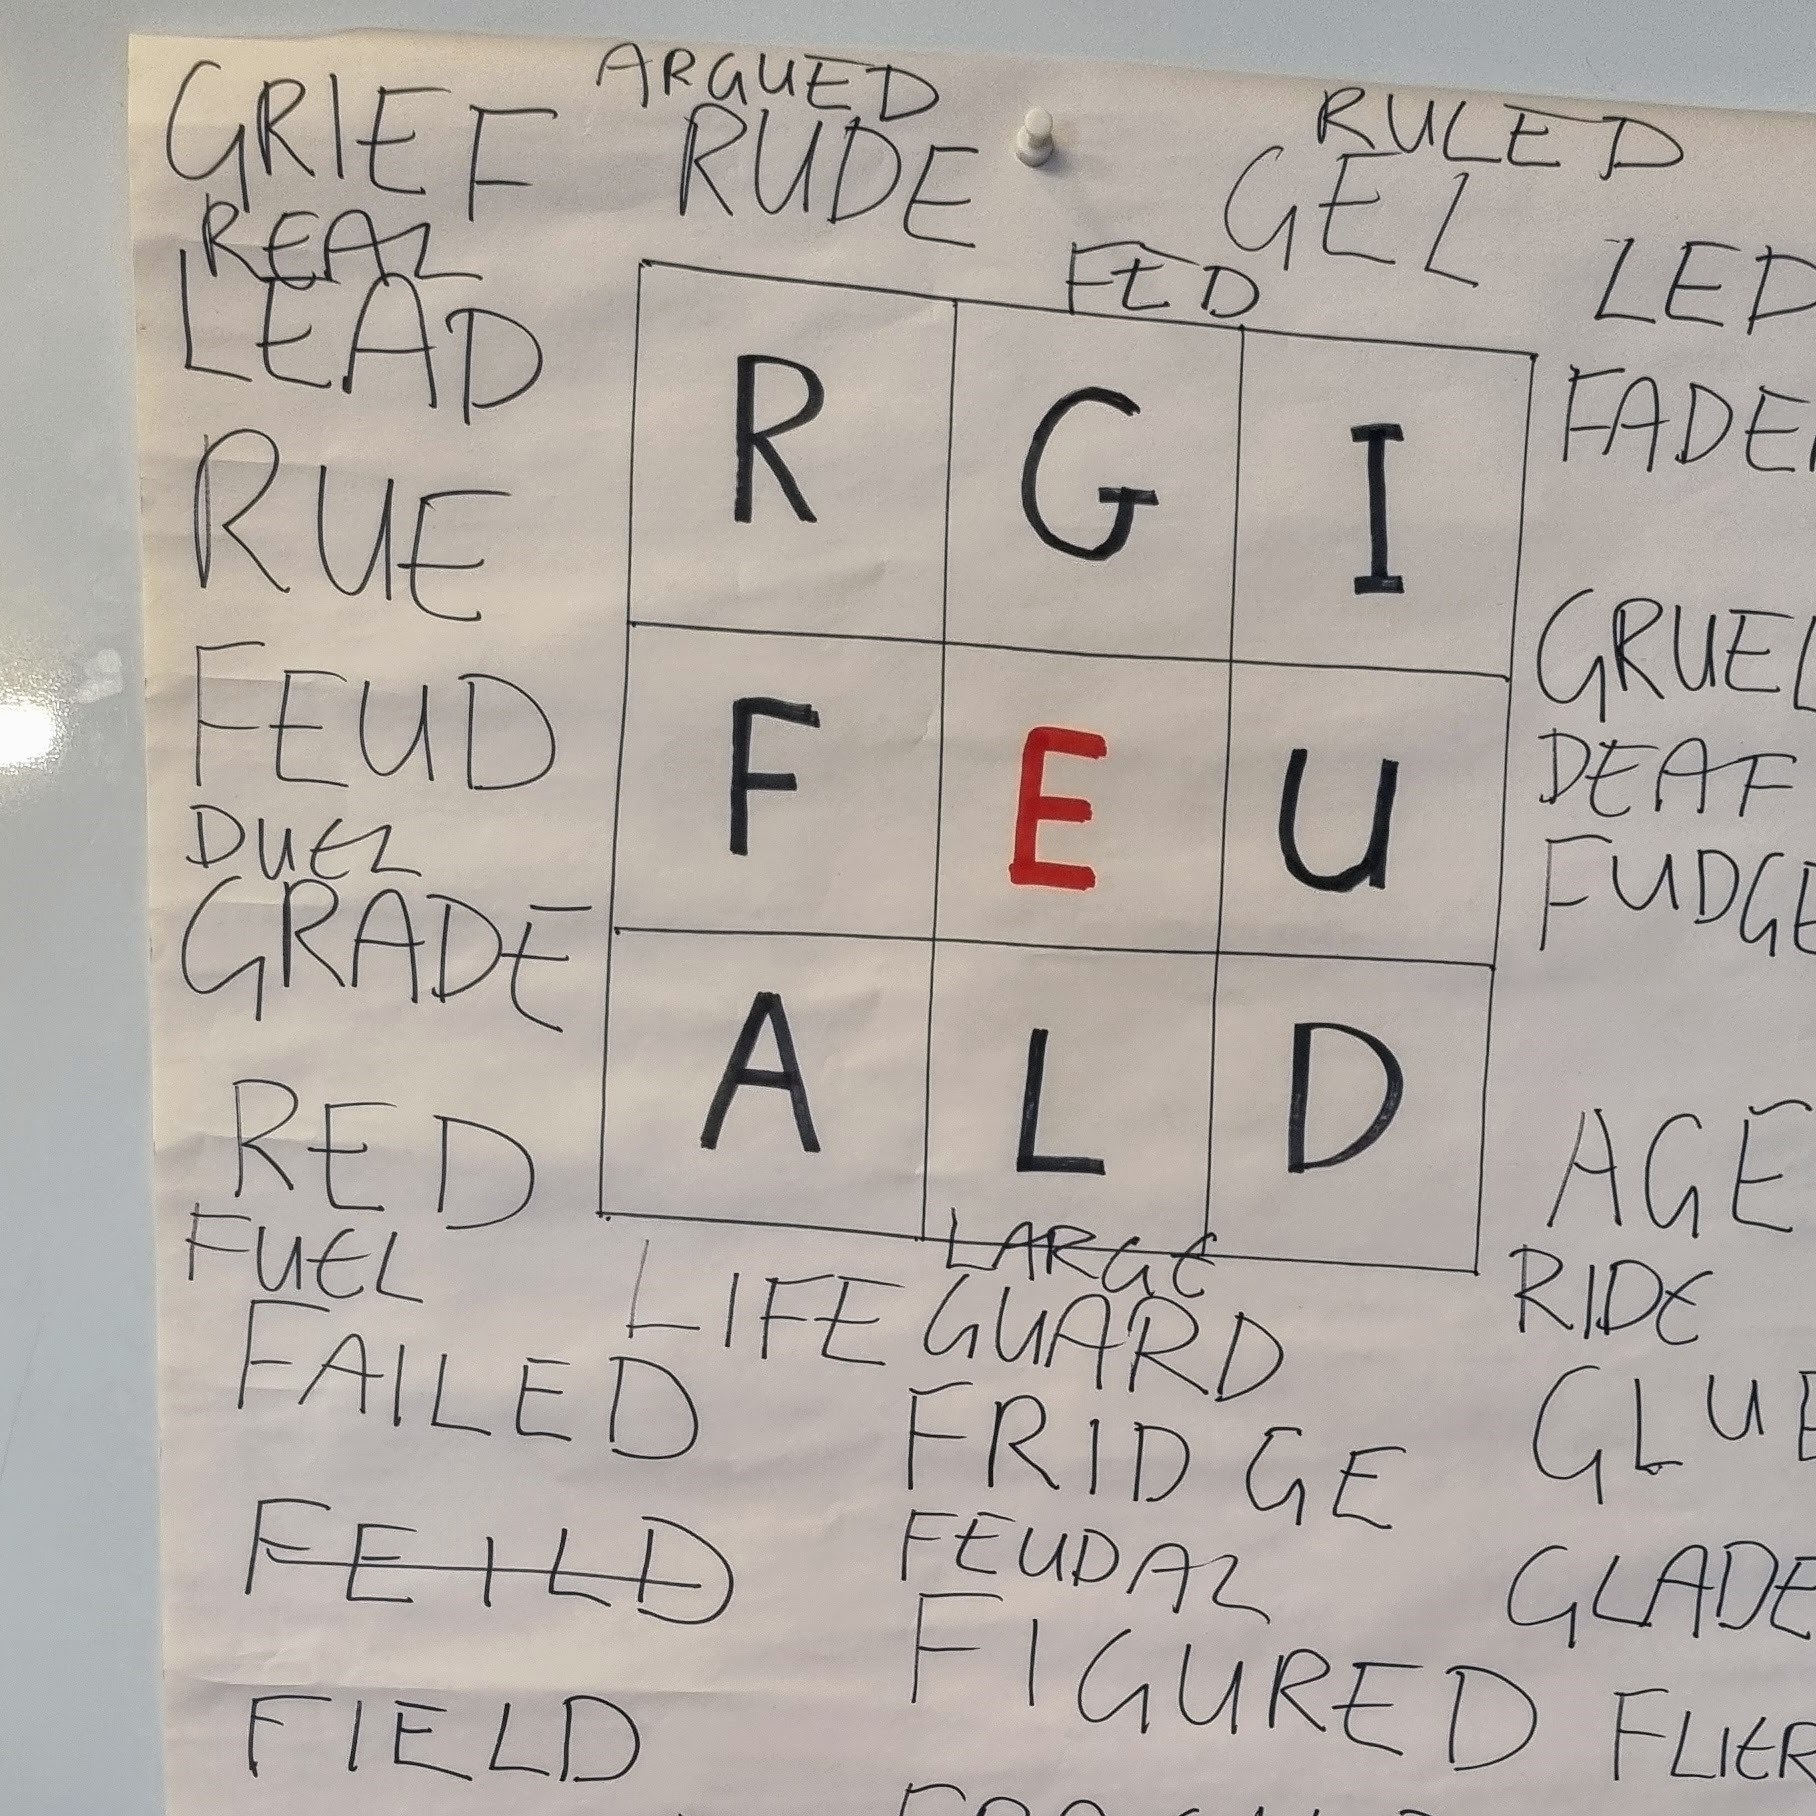 ARGUED
GRIEF
RUDE
RULED
GEL
REAL
LEAD
FED
LED
FADE
R G I
RUE
GRUEL
FEUD
F E U
DEAF
DUEL
FUDGE
GRADE
A L D
RED
AGE
FUEL
LARGE
RIDE
LIFEGUARD
FAILED
GLUE
FRIDGE
FEILD
FEUDAL
GLADE
FIGURED
FIELD
FLIER